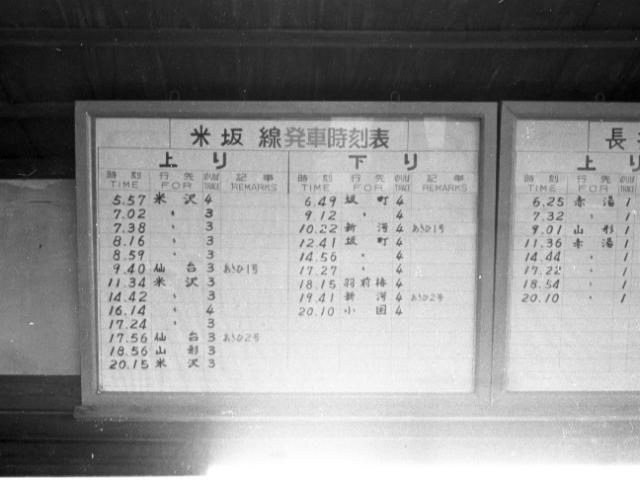 米坂線発車時刻表
上り 下り
時刻 行先 記事 時刻 行先 記事
TIME FOR TRACK REMARKS TIME FOR TRACK REMARKS
5.57 米沢 4 6.49 坂町 4
7.02 〃 3 9.12 〃 4
7.38 〃 3 10.22 新潟 4 あさひ1号
8.16 〃 3 12.41 坂町 4
8.59 〃 3 14.56 〃 4
9.40 仙台 3 あさひ1号 17.27 〃 4
11.34 米沢 3 18.15 羽前椿 4
14.42 〃 3 19.41 新潟 4 あさひ2号
16.14 〃 4 20.10 小国 4
17.24 〃 3
17.56 仙台 3 あさひ2号
18.56 山形 3
20.15 米沢 3
長
上り
時刻 行先
TIME FOR TRACK
6.25 赤湯 1
7.32 〃 1
9.01 山形 1
11.36 赤湯 1
14.44 〃 1
17.22 〃 1
18.54 〃 1
20.10 〃 1